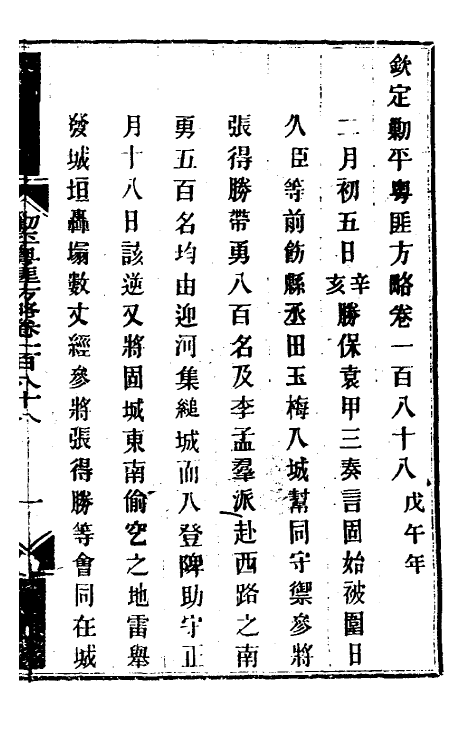 欽定勦平粵匪方略卷一百八十八 戊午年
二月初五日辛亥勝保袁甲三奏言固始被圍日
久臣等前飭縣丞田玉梅入城幫同守禦參將
張得勝帶勇八百名及李孟羣派赴西路之南
勇五百名均由迎河集縋城而入登陴助守正
月十八日該逆又將固城東南偷空之地雷舉
發城垣轟塌數丈經參將張得勝等會同在城
勦平粵匪方略卷一百八十八 一